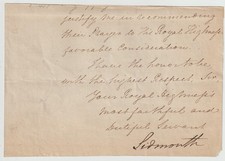 justify me in recommending
their Prayer to The Royal Highness's
favorable Consideration.
I have the honor to be,
with the highest Respect, Sir,
Your Royal Highness's
most faithful and
dutiful Servant
Sidmouth